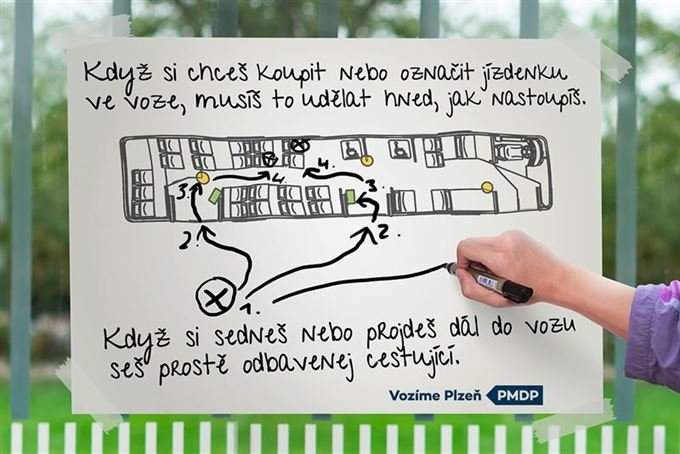 Když si chceš koupit nebo označit jízdenku
ve voze, musíš to udělat hned, jak nastoupíš.
4. 4.
3. 3.
2. 2.
1.
Když si sedneš nebo projdeš dál do vozu
seš prostě odbavenej cestující.
Vozíme Plzeň PMDP